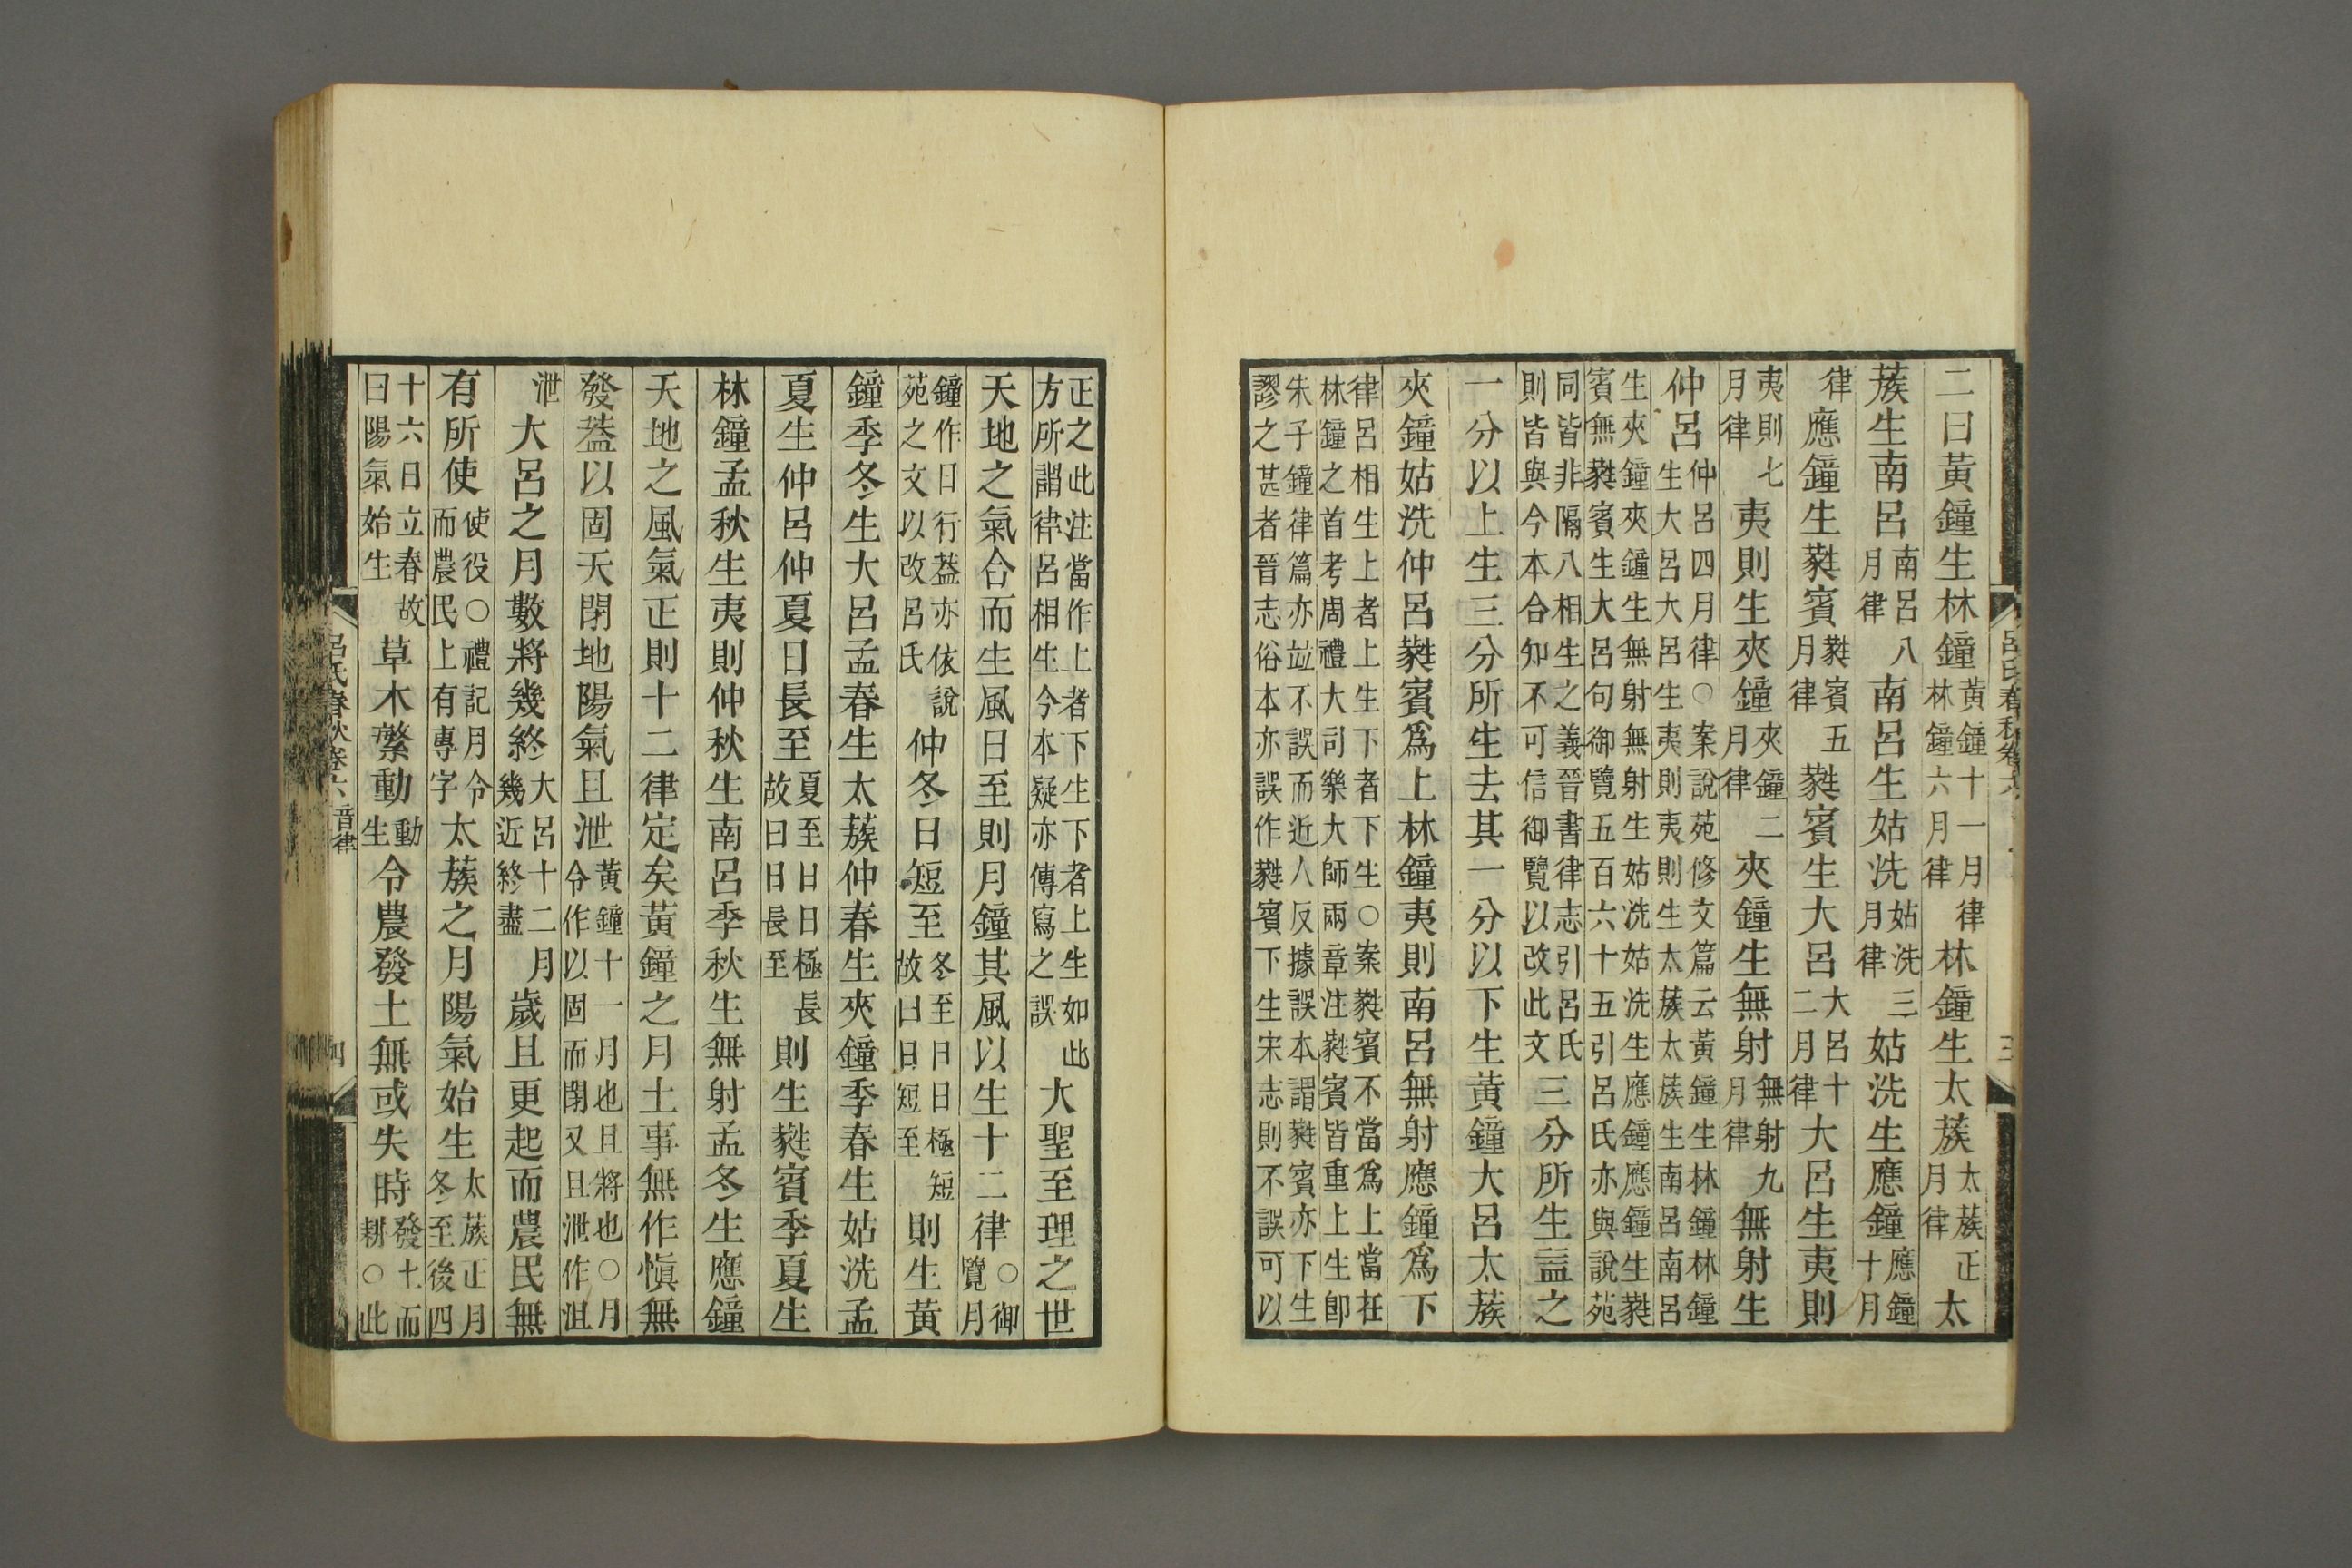 二曰黃鐘生林鐘黃鐘十一月律林鐘六月律林鐘生太蔟太蔟正月律太
蔟生南呂南呂八月律南呂生姑洗姑洗三月律姑洗生應鐘應鐘十月
律應鐘生蕤賓蕤賓五月律蕤賓生大呂大呂十二月律大呂生夷則
夷則七月律夷則生夾鐘夾鐘二月律夾鐘生無射無射九月律無射生
仲呂仲呂四月律○案說苑修文篇云黃鐘生林鐘林鐘
生大呂大呂生夷則夷則生太蔟太蔟生南呂南呂
生夾鐘夾鐘生無射無射生姑洗姑洗生應鐘應鐘生蕤
賓無蕤賓生大呂句御覽五百六十五引呂氏亦與說苑
同皆非隔八相生之義晉書律志引呂氏
則皆與今本合知不可信御覽以改此文三分所生益之
一分以上生三分所生去其一分以下生黃鐘大呂太蔟
夾鐘姑洗仲呂蕤賓爲上林鐘夷則南呂無射應鐘爲下
律呂相生上者上生下者下生○案蕤賓不當爲上當在
林鐘之首考周禮大司樂大師兩章注蕤賓皆重上生卽
朱子鐘律篇亦竝不誤而近人反據誤本謂蕤賓亦下生
謬之甚者晉志俗本亦誤作蕤賓下生宋志則不誤可以
正之此注當作上者下生下者上生如此
方所謂律呂相生今本疑亦傳寫之誤大聖至理之世
天地之氣合而生風日至則月鐘其風以生十二律○御覽月
鐘作日行蓋亦依說苑之文以改呂氏仲冬日短至冬至日日極短故曰日短至則生黃
鐘季冬生大呂孟春生太蔟仲春生夾鐘季春生姑洗孟
夏生仲呂仲夏日長至夏至日日極長故曰日長至則生蕤賓季夏生
林鐘孟秋生夷則仲秋生南呂季秋生無射孟冬生應鐘
天地之風氣正則十二律定矣黃鐘之月土事無作愼無
發蓋以固天閉地陽氣且泄黃鐘十一月也且將也○月令作以固而閉又且泄作沮
泄大呂之月數將幾終大呂十二月幾近終盡歲且更起而農民無
有所使使役○禮記月令而農民上有專字太蔟之月陽氣始生太蔟正月冬至後四
十六日立春故曰陽氣始生草木繁動動生令農發土無或失時發土而耕○此
呂氏春秋卷六 音律 四